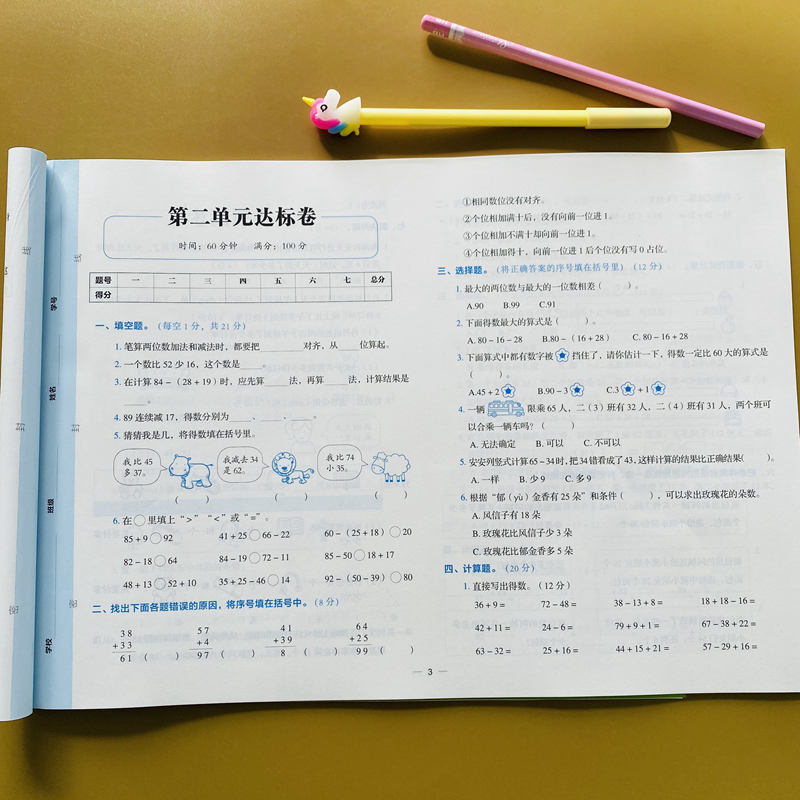 第二单元达标卷
时间：60分钟 满分：100分
题号 一 二 三 四 五 六 七 总分
得分
一、填空题。（每空1分，共21分）
1. 笔算两位数加法和减法时，都要把______对齐，从______位算起。
2. 一个数比52少16，这个数是____。
3. 在计算84－（28＋19）时，应先算____法，再算____法，计算结果是
____。
4. 89连续减17，得数分别为____、____、____。
5. 猜猜我是几，将得数填在括号里。
我比45
多37。
我减去34
是62。
我比74
小35。
（ ） （ ） （ ）
6. 在○里填上“>”“<”或“=”。
85＋9○92 41＋25○66－22 60－（25＋18）○20
82－18○64 84－19○72－11 85－50○18＋17
48＋13○52＋10 35＋25－46○14 92－（50－39）○80
二、找出下面各题错误的原因，将序号填在括号中。（8分）
38 57 41 64
+33 +4 +39 +25
61 （ ） 97 （ ） 8 （ ） 99 （ ）
①相同数位没有对齐。
②个位相加满十后，没有向前一位进1。
③个位相加不满十却向前一位进1。
④个位相加得十，向前一位进1后个位没有写0占位。
三、选择题。（将正确答案的序号填在括号里）（12分）
1. 最大的两位数与最大的一位数相差（ ）。
A.90 B.99 C.91
2. 下面得数最大的算式是（ ）。
A. 80－16－28 B.80－（16＋28） C. 80－16＋28
3. 下面算式中都有数字被 挡住了，请你估计一下，得数一定比60大的算式是
（ ）。
A.45＋2 B.90－3 C.3 ＋1
4. 一辆 限乘65人，二（3）班有32人，二（4）班有31人，两个班可
以合乘一辆车吗？（ ）
A. 无法确定 B. 可以 C. 不可以
5. 安安列竖式计算65－34时，把34错看成了43，这样计算的结果比正确结果（ ）。
A. 一样 B. 少9 C. 多9
6. 根据“郁（yù）金香有25朵”和条件（ ），可以求出玫瑰花的朵数。
A. 风信子有18朵
B. 玫瑰花比风信子少3朵
C. 玫瑰花比郁金香多5朵
四、计算题。（20分）
1. 直接写出得数。（12分）
36＋9＝ 72－48＝ 38－13＋8＝ 18＋18－16＝
42＋11＝ 24－6＝ 79＋9＋1＝ 67－38＋22＝
63－32＝ 25＋16＝ 44＋15＋21＝ 57－29＋16＝
— 3 —
学号
姓名
班级
学校
线
封
密